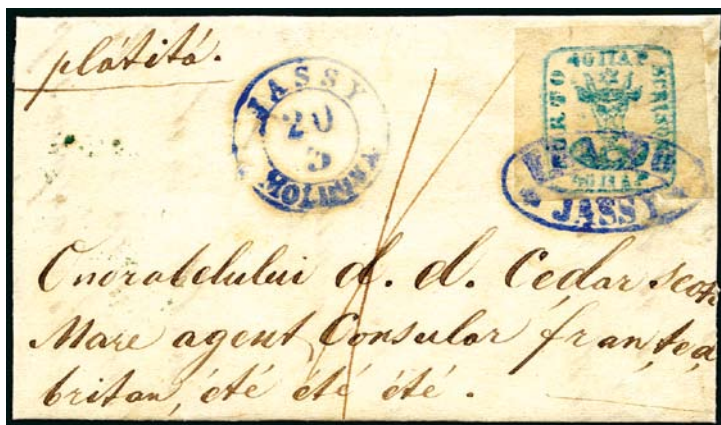 plătită.
JASSY
20
3
MOLDAVIA
40 ПАР
PORTO
SCRISOREI
40 ПАР
JASSY
Onorabelului d. d. Cedar scott
Mare agent Consular franțea
britan, été été été.